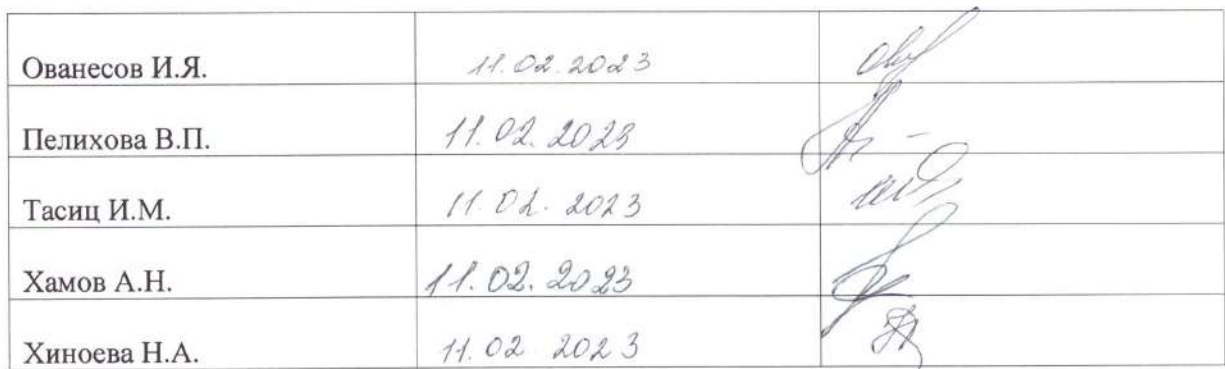 Ованесов И.Я. 11.02.2023
Пелихова В.П. 11.02.2023
Тасиц И.М. 11.02.2023
Хамов А.Н. 11.02.2023
Хиноева Н.А. 11.02.2023